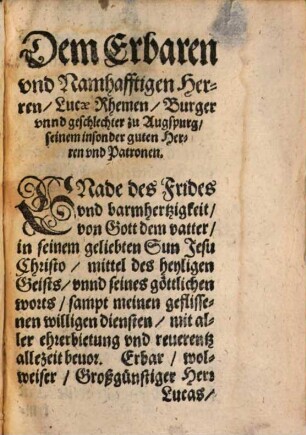 Dem Erbaren
vnd Namhafftigen Her-
ren / Lucæ Rhemen / Burger
vnnd geschlechter zu Augspurg /
seinem insonder guten Her-
ren vnd Patronen.
GNade des Frides
vnd barmhertzigkeit /
von Gott dem vatter /
in seinem geliebten Sun Jesu
Christo / mittel des heyligen
Geists / vnnd seines göttlichen
worts / sampt meinen geflisse-
nen willigen diensten / mit al-
ler ehrerbietung vnd reuerentz
allezeit beuor. Erbar / wol-
weiser / Großgünstiger Herr
Lucas /